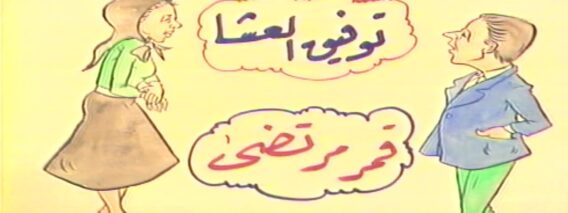 توفيق العشا
قمر مرتضى